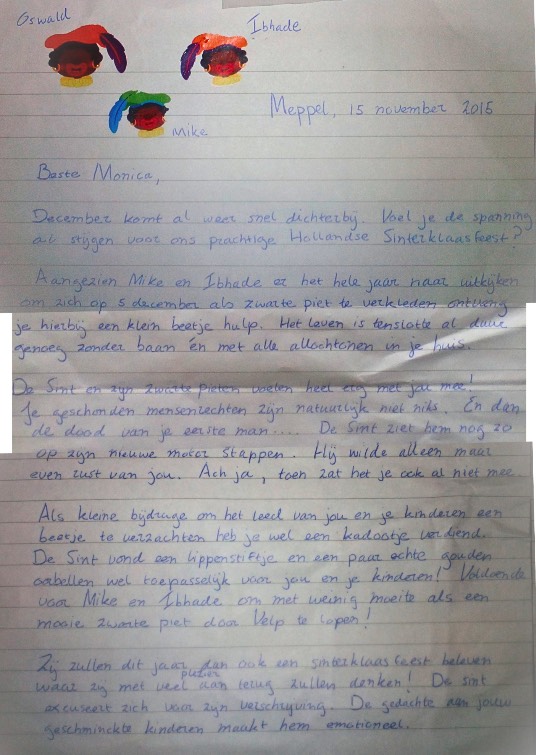 Oswald
Ibhade
Mike
Meppel, 15 november 2015
Beste Monica,
December komt al weer snel dichterbij. Voel je de spanning
al stijgen voor ons prachtige Hollandse Sinterklaasfeest?
Aangezien Mike en Ibhade er het hele jaar naar uitkijken
om zich op 5 december als zwarte piet te verkleden ontvang
je hierbij een klein beetje hulp. Het leven is tenslotte al duur
genoeg zonder baan én met alle allochtonen in je huis.
De Sint en zijn zwarte pieten voelen heel erg met jou mee!
Je geschonden mensenrechten zijn natuurlijk niet niks. En dan
de dood van je eerste man..... De Sint ziet hem nog zo
op zijn nieuwe motor stappen. Hij wilde alleen maar
even rust van jou. Ach ja, toen zat het je ook al niet mee
Als kleine bijdrage om het leed van jou en je kinderen een
beetje te verzachten heb je wel een kadootje verdiend.
De Sint vond een lippenstiftje en een paar echte gouden
oorbellen wel toepasselijk voor jou en je kinderen! Voldoende
voor Mike en Ibhade om met weinig moeite als een
mooie zwarte piet door Velp te lopen!
Zij zullen dit jaar dan ook een sinterklaasfeest beleven
waar zij met veel plezier aan terug zullen denken! De sint
excuseert zich voor zijn verschrijving. De gedachte aan jouw
geschminckte kinderen maakt hem emotioneel.